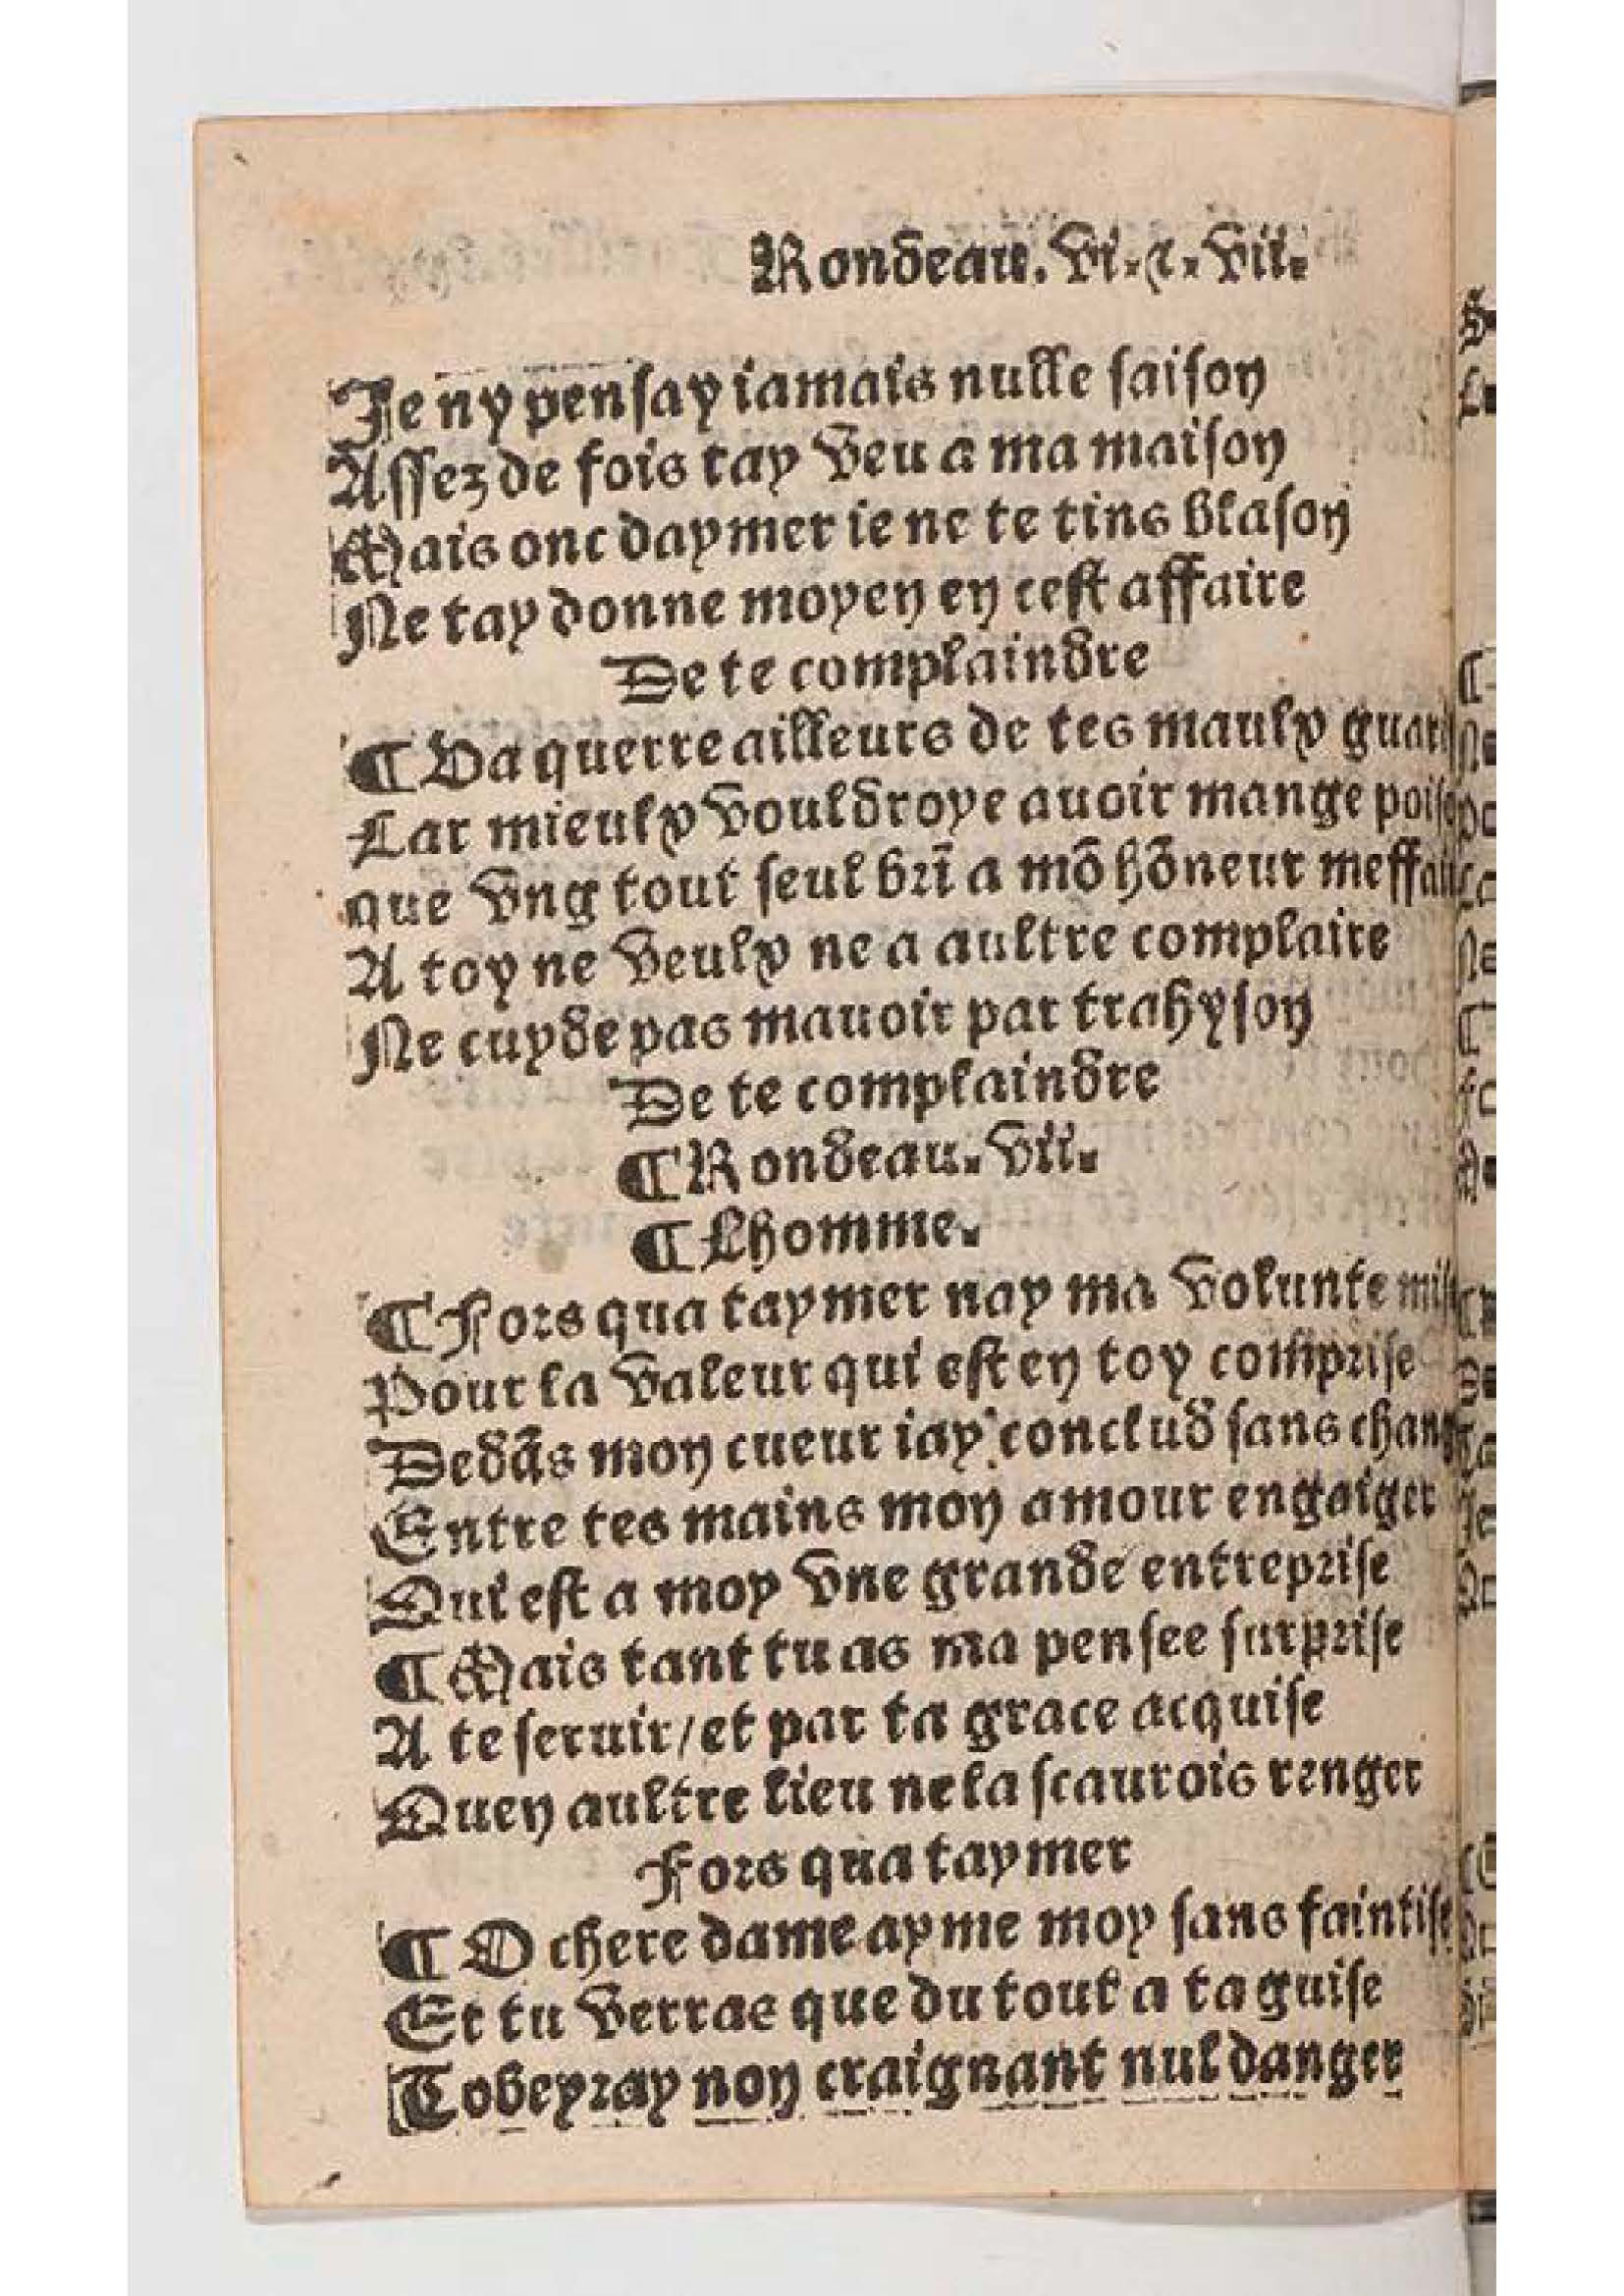 Rondeau. vi. ⁊. vii.
Je ny pensay iamais nulle saison
Assez de fois tay veu a ma maison
Mais onc daymer ie ne te tins blason
Ne tay donne moyen en cest affaire
De te complaindre
¶ Va querre ailleurs de tes maulx
Car mieulx vouldroye auoir mange
que vng tout seul bri a mõ hõneur
A toy ne veulx ne a aultre complaire
Ne cuyde pas mauoir par trahyson
De te complaindre
¶ Rondeau. vii.
¶ Lhomme.
¶ Fors qua taymer nay ma volunte
Pour la valeur qui est en toy comprise
Dedãs mon cueur iay conclud sans
Entre tes mains mon amour engaiger
Qui est a moy vne grande entreprise
¶ Mais tant tu as ma pensee surprise
A te seruir / et par ta grace acquise
Quen aultre lieu ne la scaurois renger
Fors qua taymer
¶ O chere dame ayme moy sans faintise
Et tu verras que du tout a ta guise
Tobeyray non craignant nul danger